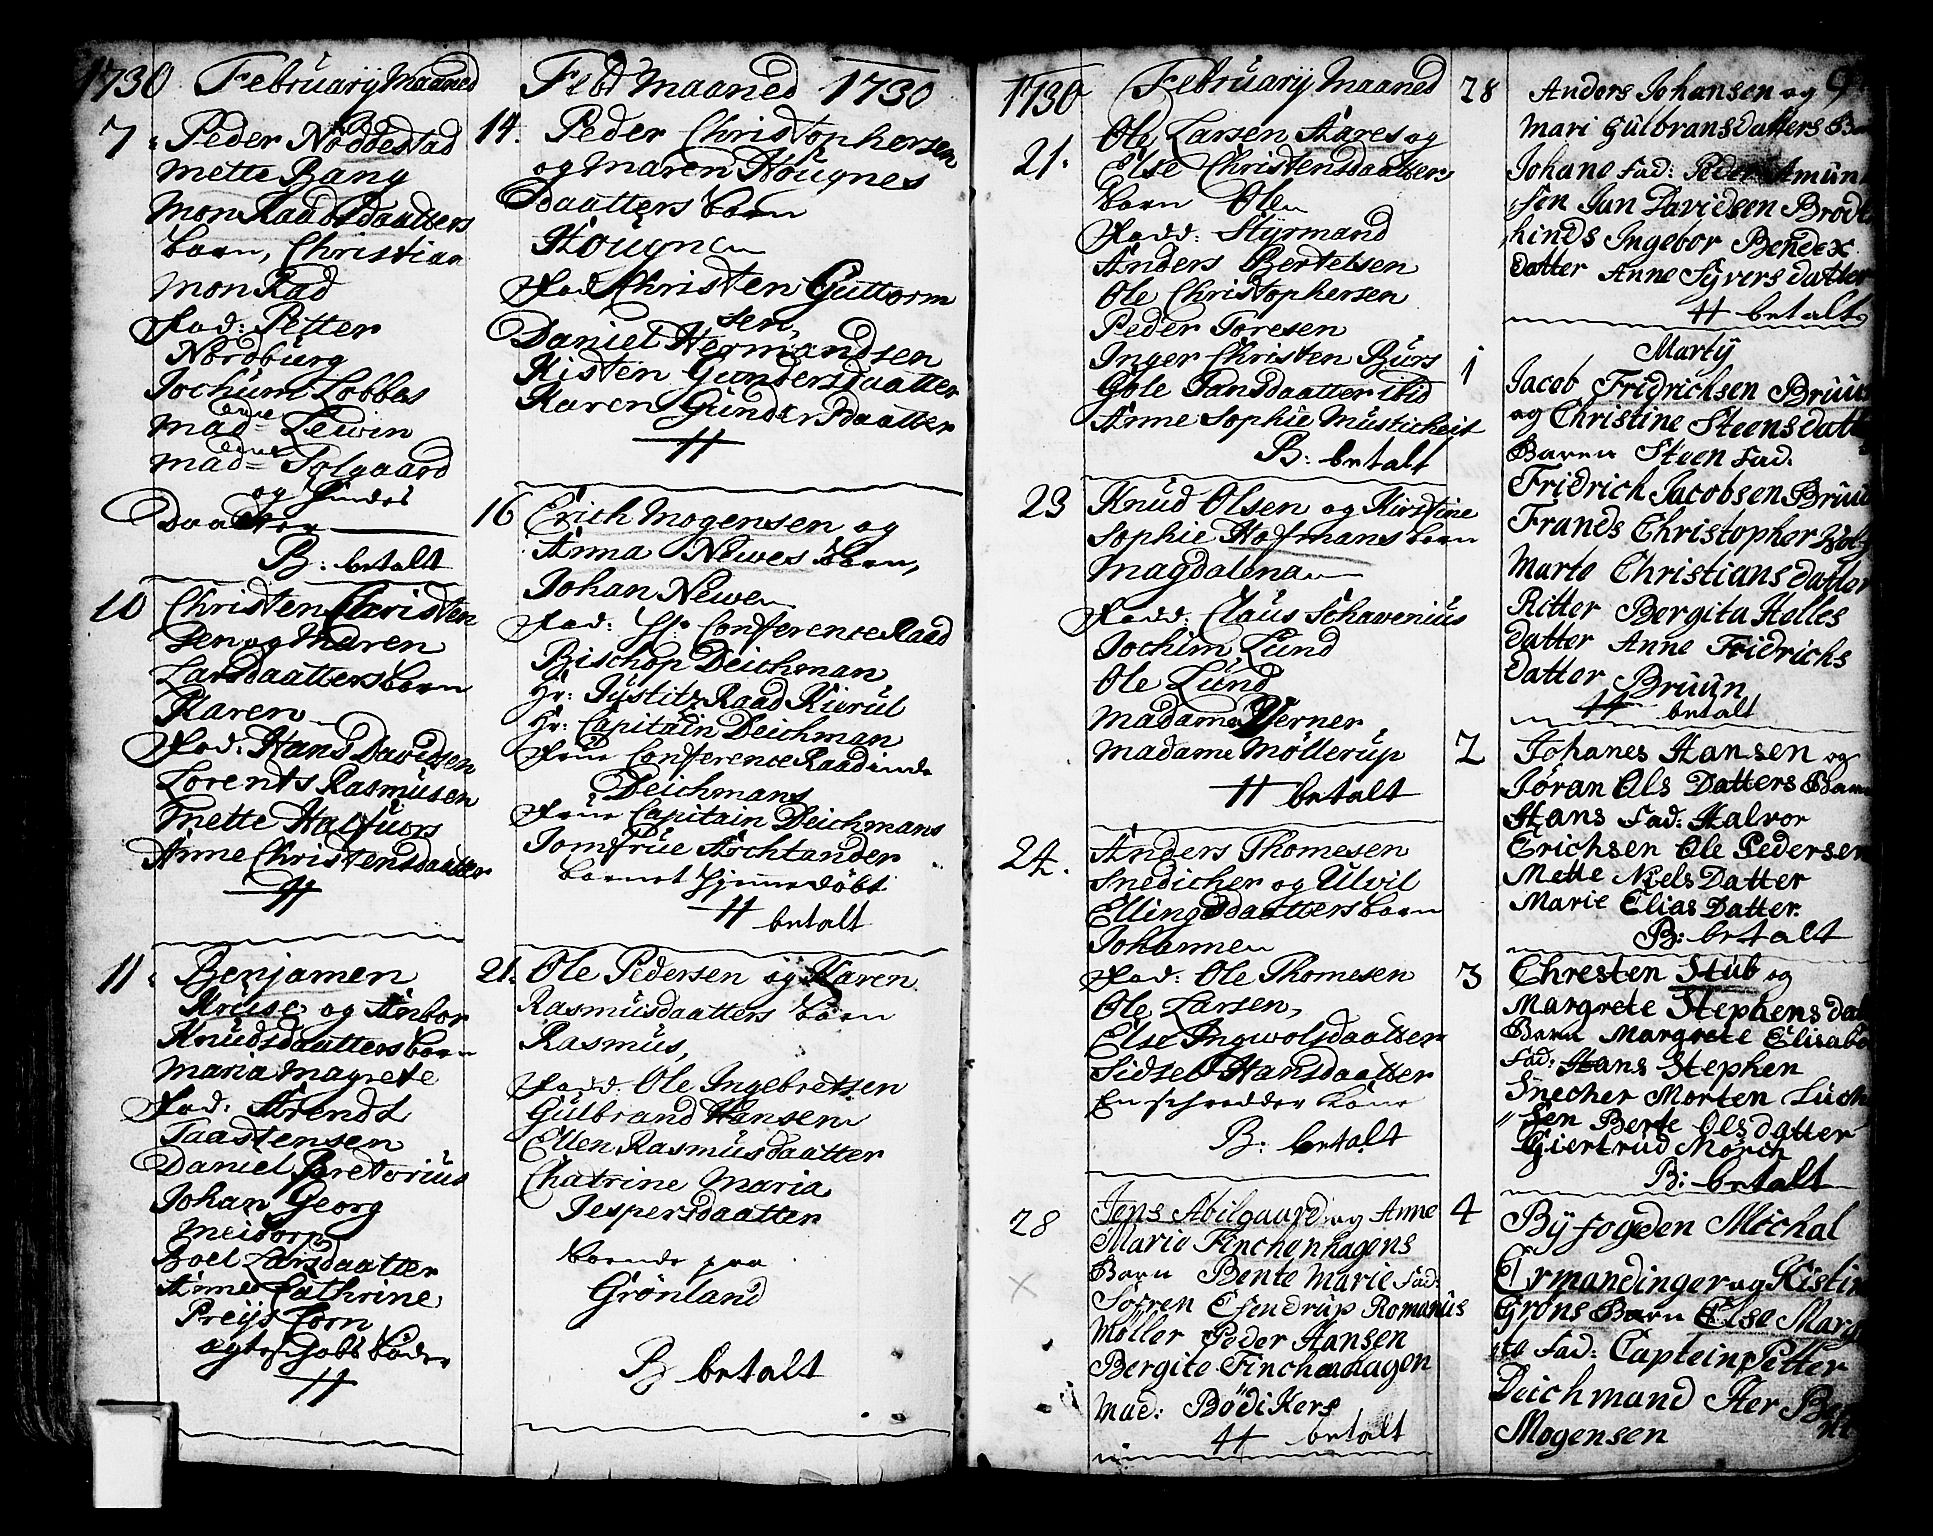 1730 Februarij Maaned
7. Peder Noddestad
Mette Bang
MonRads daatters
barn, Christian
MonRad
Fad: Petter
Nordburg
Jochum Lobbes
Mad: Lewin
Mad: Tolgaard
og hindes
Daatter
B: betalt
10 Christen Christen
sen og Maren
Larsdaatters barn
Karen
Fad: Hans Davidsen
Lorents Rasmusen
Mette Halfuors
Anne Christensdaatter
#
11. Benjamen
Kruse og Anbor
Knudsdaatters barn
Maria Magrete
Fad. Arendt
Taastensen
Daniel Pretorius
Johan Georg
Meidorp
Boel Larsdaatter
Anne Cathrine
Preijs Corn
#
Feb: Maaned 1730
14. Peder Christophersen
og Maren Hougnes
daatters barn
Hougne
Fad Christen Guttorm
sen,
Daniel Hermandsen
Kisten Gundersdaatter
Karen Gundersdaatter
#
16 Erich Mogensen og
Anna Newes barn,
Johan Newe
Fad: Hr Conference Raad
Bischop Deichman
Hr: Justitz Raad Kierul
Hr: Capitain Deichman
Frue Conference Raadinde
Deichmans
Frue Capitain Deichmans
Jomfrue Archtander
barnet hjemme døbt
# betalt
21. Ole Pedersen og Karen
Rasmusdaatters barn
Rasmus,
Fadd. Ole Ingebretsen
Gulbrand Hansen
Ellen Rasmusdaatter
Chatrine Maria
Jespersdaatter
boende paa
Grønland
B betalt
1730 Februarij Maaned
21. Ole Larsen Aares og
Else Christensdaatters
barn Ole
Fadd: Styrmand
Anders Bertelsen
Ole Christophersen
Peder Toresen
Inger Christen Burs
Gole Jansdaatter ibid
Anne Sophie Musticheit
B: betalt
23 Knud Olsen og Kirstine
Sophie Hofmans barn
Magdalena
Fadd: Claus Schavenius
Jochim Lund
Ole Lund
Madame Verner
Madame Møllerup
# betalt
24. Anders Thomesen
Snedicher og Ulvil
Ellingsdaatters barn
Johanne
Fad: Ole Thomesen
Ole Larsen,
Else Ingwolsdaatter
Sidsel Hansdaatter
En schredder Kone
B: betalt
28 Jens Abilgaard og Anne
Marie Finchenhagens
Barn Bente Marie Fad:
Søfren Esendrup Romanus
Møller Peder Hansen
Bergite Finchenhagen
Mad: Bødikers
# betalt
28 Anders Johansen og
Mari Gulbrans datters
Johane Fad: Peder Amun
sen Jan Davidsen Brodt
hinds Ingebor Bendex
datter Anne Syvers datter
# betalt
Martij
1 Jacob Fridrichsen Bruun
og Christine Steens datt
Baren Steen Fad:
Fridrich Jacobsen Bruu
Frands Christopher
Marte Christians datter
Ritter Bergita Helles
datter Anne Fridrichs
datter Bruun
# betalt
2 Johanes Hansen og
Jøran Ols Datters Barn
Hans Fad: Halvor
Erichsen Ole Pedersen
Mette Niels Datter
Marie Elias Datter.
B: betalt
3 Chresten Stub og
Margrete Stephens dat
Barn Margrete Elisab
Fad: Hans Stephen
Snecher Morten Luch
sen Berte Ols datter
Giertrud Mørch
B: betalt
4 Byfogden Michal
Ermandinger og Kistin
Grøns Barn Else Marg
te Fad: Captein Petter
Deichmand Her
Mogensen